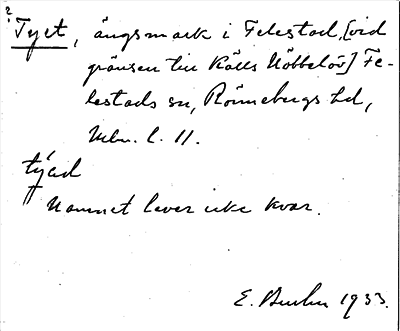 ? Tyet, ängsmark i Felestad, [vid
gränsen till Källs Nöbbelöv] Fe-
lestads sn, Rönnebergs hd,
Mlm. l. 11.
týad
Namnet lever icke kvar.
E. 1933.